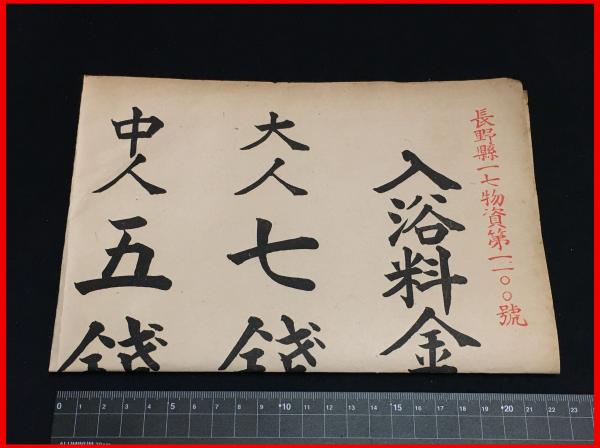 長野縣一七物資第一二〇〇號
入浴料金
大人七錢
中人五錢
0 1 2 3 4 5 6 7 8 9 10 11 12 13 14 15 16 17 18 19 20 21 22 23